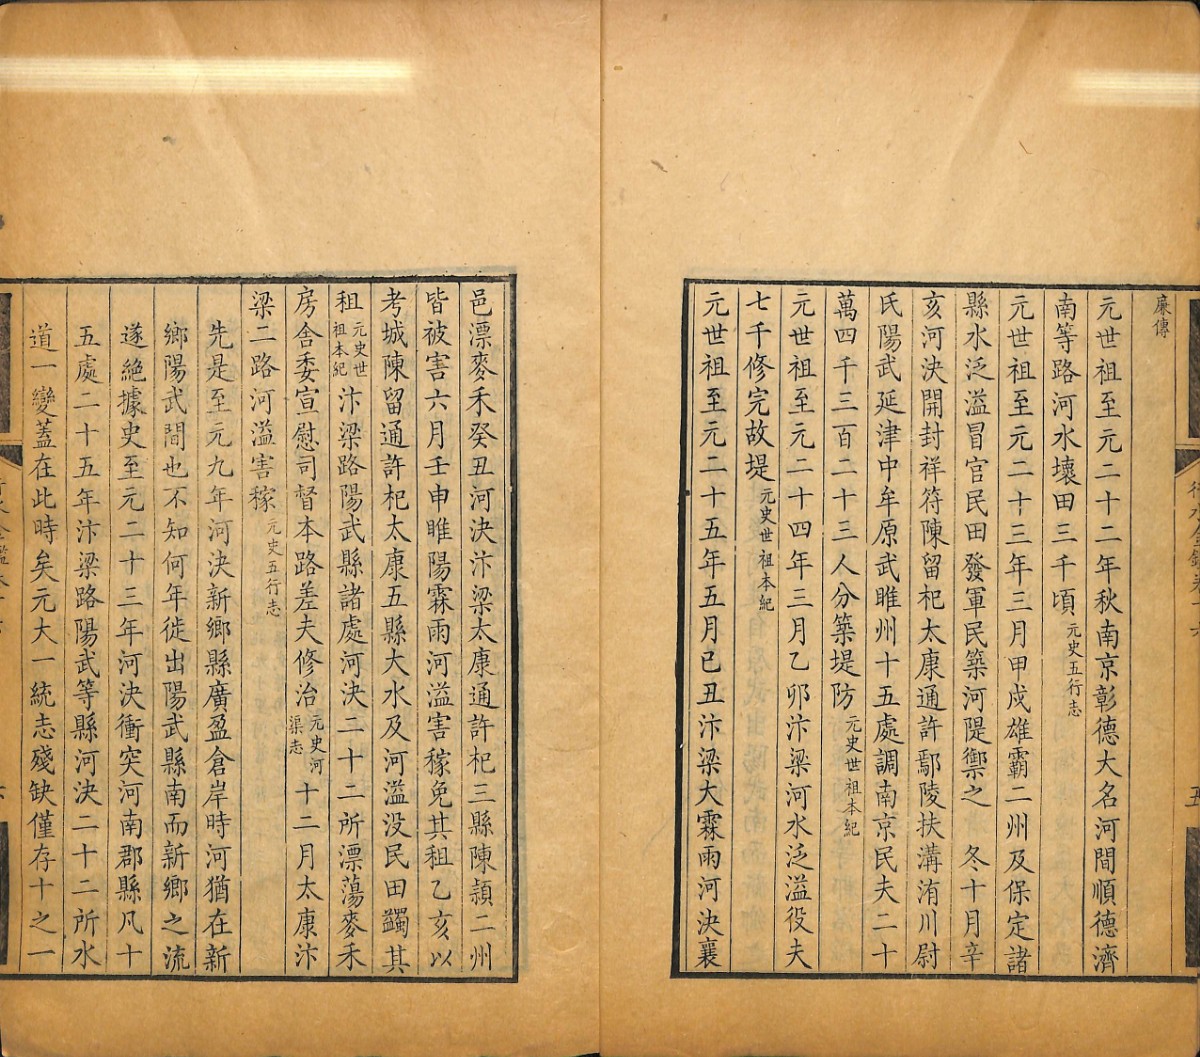 廉傳
元世祖至元二十二年秋南京彰德大名河間順德濟
南等路河水壞田三千頃元史五行志
元世祖至元二十三年三月甲戌雄霸二州及保定諸
縣水泛溢冒官民田發軍民築河隄禦之 冬十月辛
亥河決開封祥符陳留杞太康通許鄢陵扶溝洧川尉
氏陽武延津中牟原武睢州十五處調南京民夫二十
萬四千三百二十三人分築堤防元史世祖本紀
元世祖至元二十四年三月乙卯汴梁河水泛溢役夫
七千修完故堤元史世祖本紀
元世祖至元二十五年五月已丑汴梁大霖雨河決襄
邑漂麥禾癸丑河決汴梁太康通許杞三縣陳潁二州
皆被害六月壬申睢陽霖雨河溢害稼免其租乙亥以
考城陳留通許杞太康五縣大水及河溢没民田蠲其
租元史世祖本紀汴梁路陽武縣諸處河決二十二所漂蕩麥禾
房舍委宣慰司督本路差夫修治元史河渠志十二月太康汴
梁二路河溢害稼元史五行志
先是至元九年河決新鄉縣廣盈倉岸時河猶在新
鄉陽武間也不知何年徙出陽武縣南而新鄉之流
遂絕據史至元二十三年河決衝突河南郡縣凡十
五處二十五年汴梁路陽武等縣河決二十二所水
道一變蓋在此時矣元大一統志殘缺僅存十之一